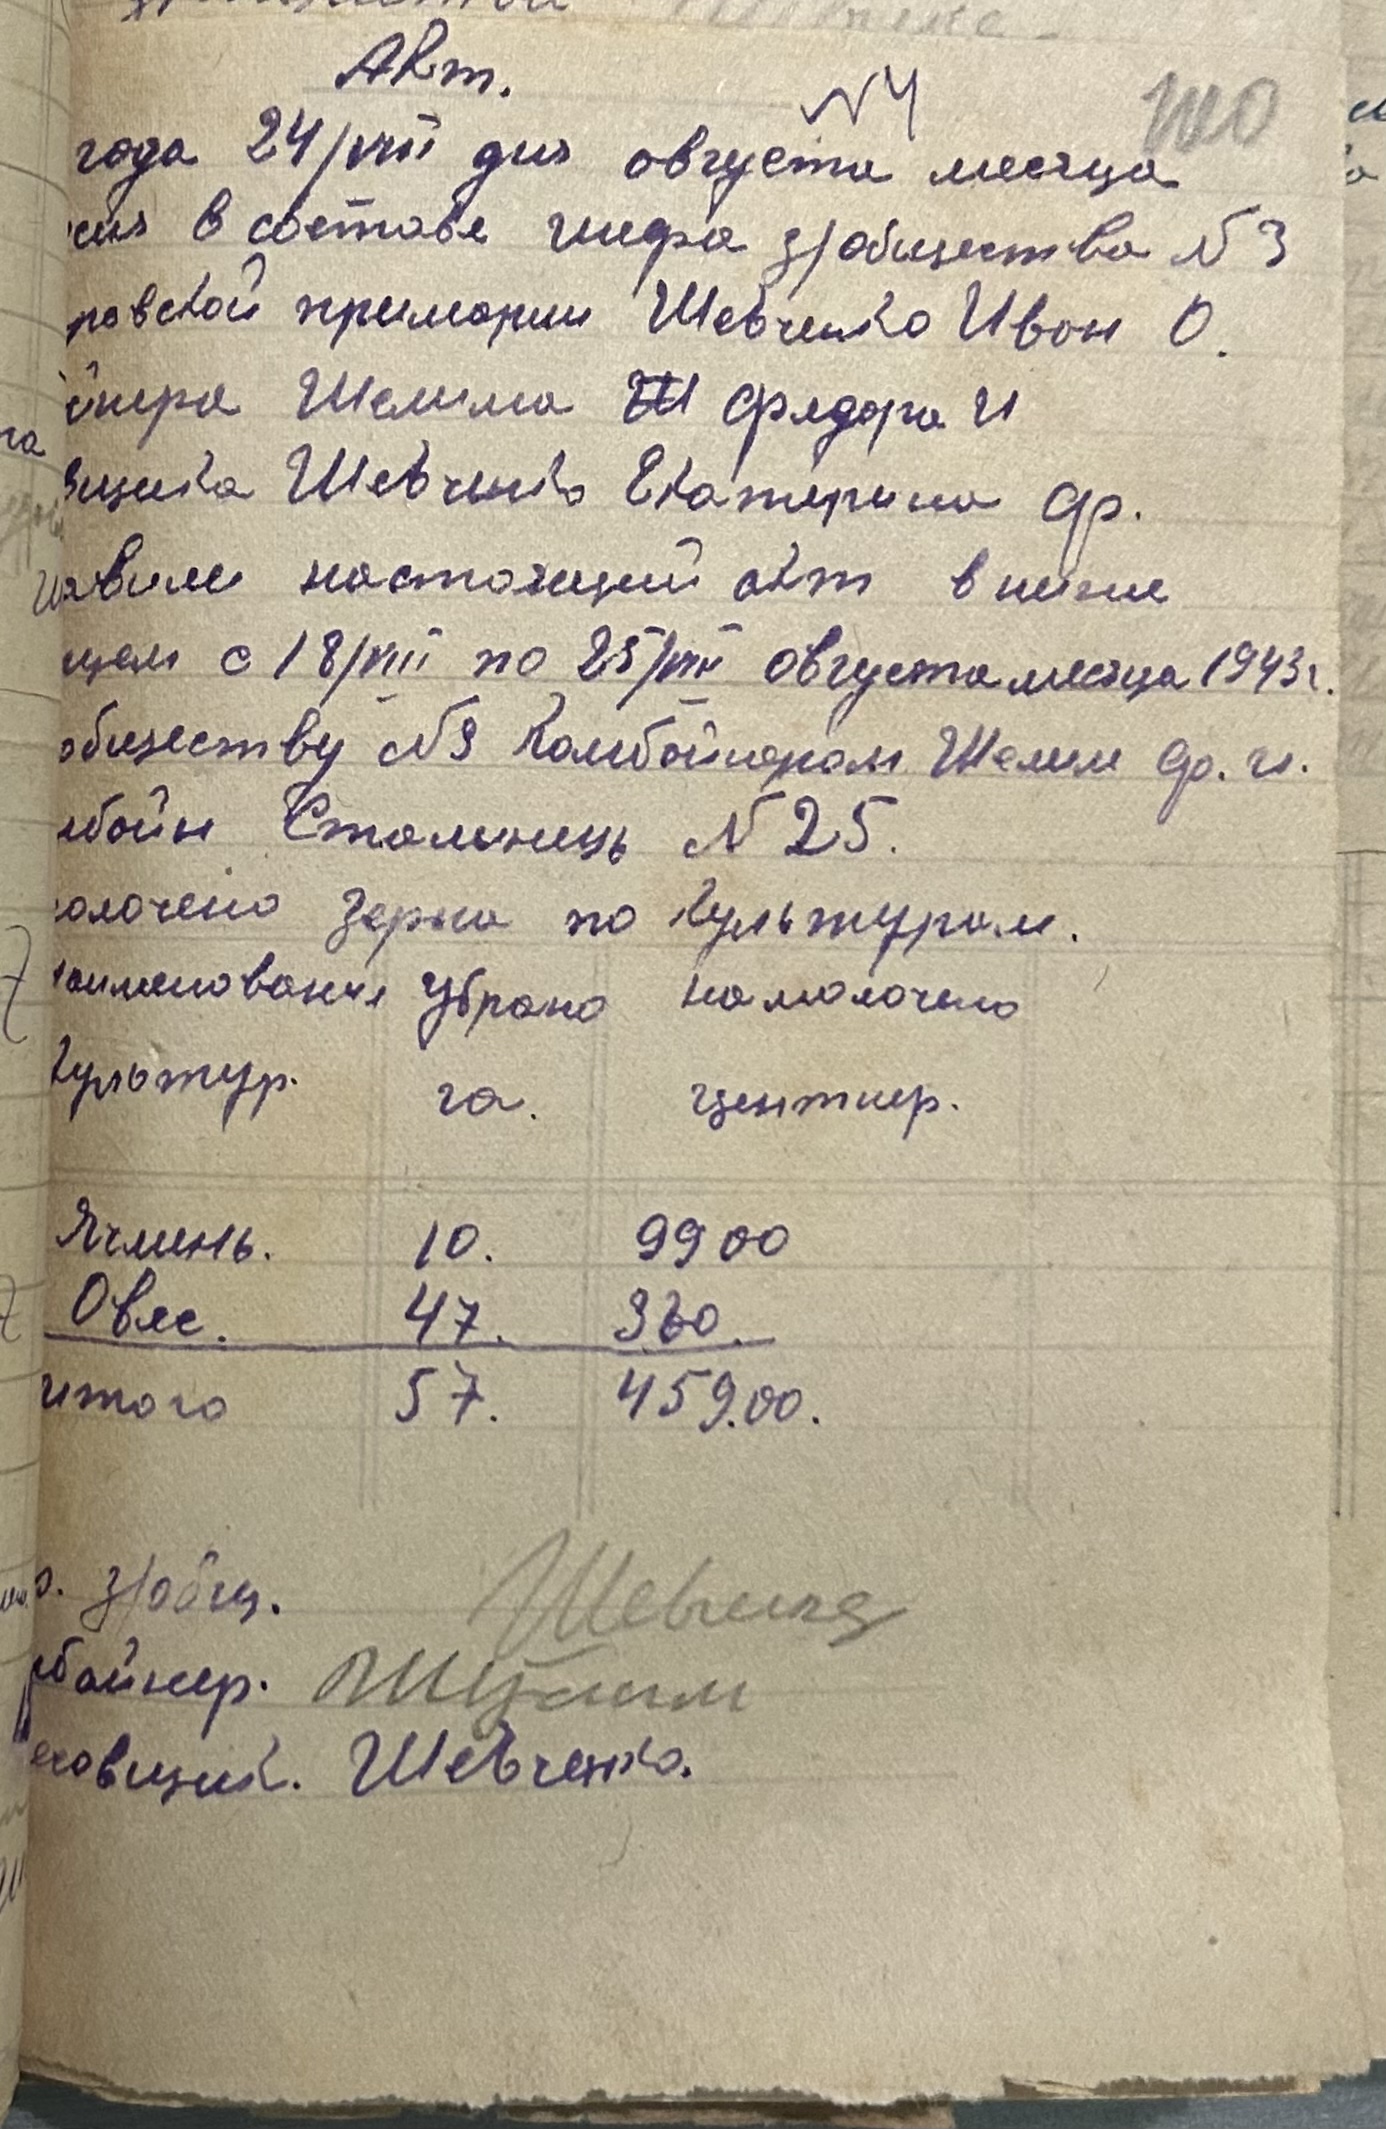 Акт.
№ 4
года 24/VIII дня августа месяца
в составе шефа з/общества № 3
ровской примарии Шевченко Иван О.
йнера Шелима Ш Фядора И
вщика Шевченко Екатерина Ф.
тавили настоящий акт в ниже
щем с 18/VIII по 25/VIII августа месяца 1943 г.
обществу № 3 Комбайнером Шелим Ф. И.
мбайн Сталинець № 25.
молочено зерна по культурам.
наименования убрано намолочено
культур. га. центнер.
Ячмень. 10. 9900
Овяс. 47. 360.
итого 57. 459.00.
з/общ.
мбайнер.
есовщик. Шевченко.